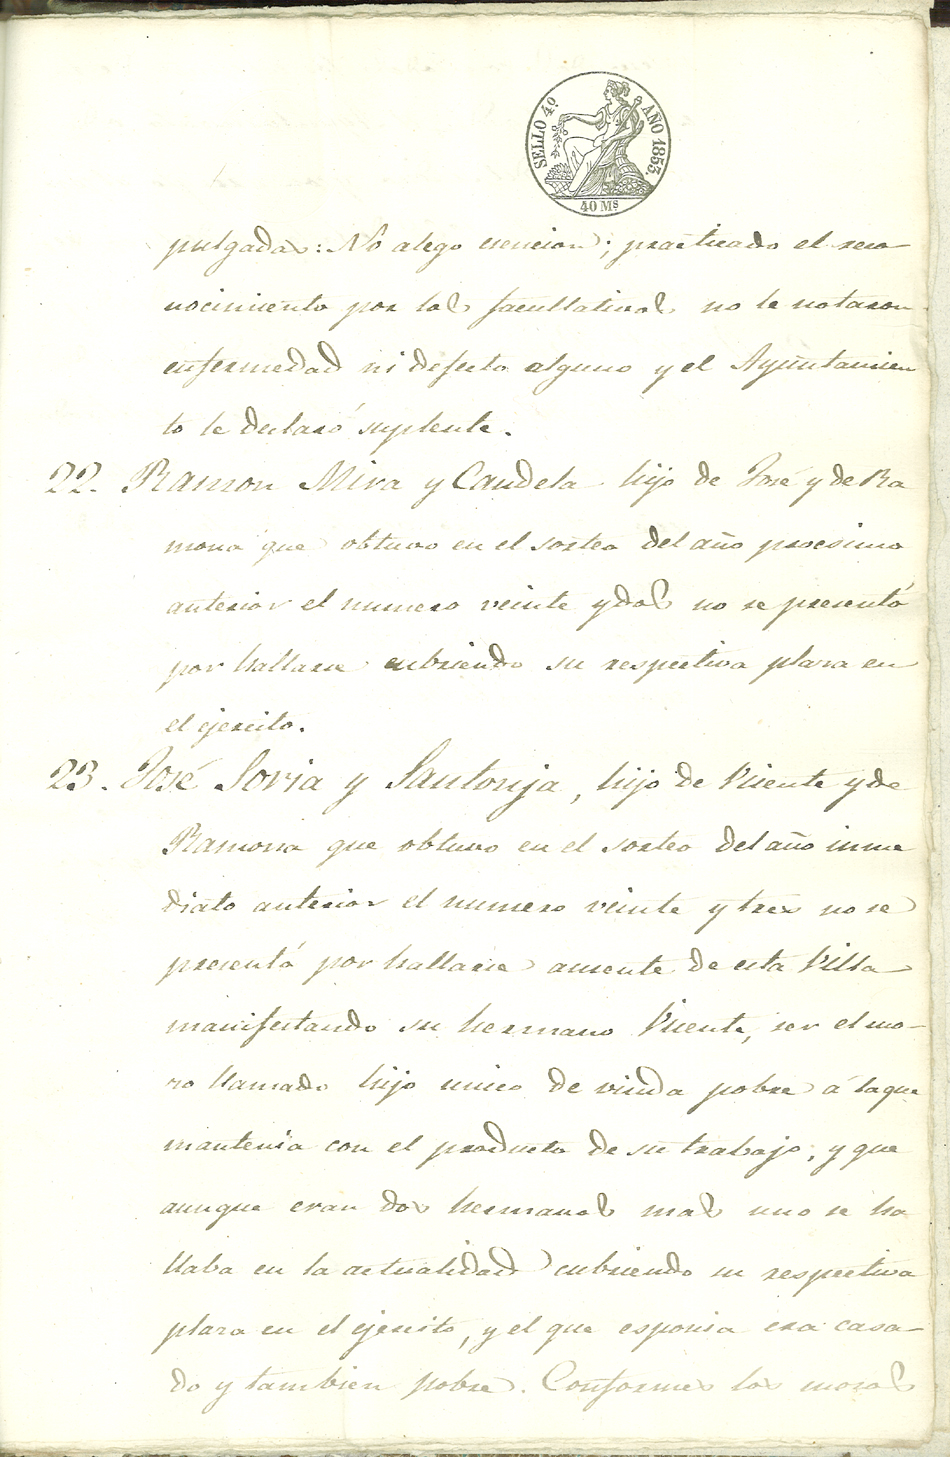 SELLO 4º. AÑO 1853.
40 Ms
pulgadas: No alego esencion; practicado el reco
nocimiento por los facultativos no le notaron
enfermedad ni defecto alguno y el Ayuntamien
to le declaró suplente.
22. Ramon Mira y Candela hijo de José y de Ra
mona que obtuvo en el sorteo del año procsimo
anterior el numero veinte y dos no se presentó
por hallarse cubriendo su respectiva plaza en
el ejercito.
23. José Soria y Santonja, hijo de Vicente y de
Ramona que obtuvo en el sorteo del año inme
diato anterior el numero veinte y tres no se
presentó por hallarse ausente de esta Villa
manifestando su hermano Vicente, ser el mo-
zo llamado hijo unico de viuda pobre á la que
mantenia con el producto de su trabajo; y que
aunque eran dos hermanos mas uno se ha
llaba en la actualidad cubriendo su respectiva
plaza en el ejercito, y el que esponia era casa-
do y tambien pobre. Conformes los mozos